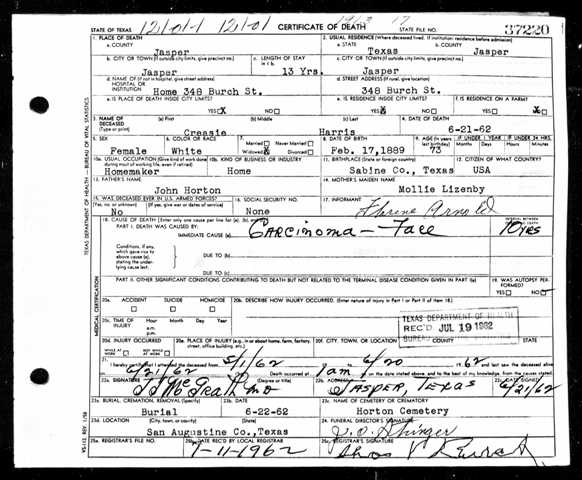 STATE OF TEXAS
CERTIFICATE OF DEATH
STATE FILE NO.
37220
1. PLACE OF DEATH
a. COUNTY
Jasper
2. USUAL RESIDENCE (Where deceased lived. If institution: residence before admission)
a. STATE
Texas
b. COUNTY
Jasper
b. CITY OR TOWN (If outside city limits, give precinct no.)
Jasper
c. LENGTH OF STAY
13 Yrs.
c. CITY OR TOWN (If outside city limits, give precinct no.)
Jasper
d. NAME OF (If not in hospital, give street address)
HOSPITAL OR
INSTITUTION
Home 348 Burch St.
d. STREET ADDRESS (If rural, give location)
348 Burch St.
e. IS PLACE OF DEATH INSIDE CITY LIMITS?
YES X NO
e. IS RESIDENCE INSIDE CITY LIMITS?
YES X NO
f. IS RESIDENCE ON A FARM?
YES NO X
3. NAME OF
DECEASED
(Type or print)
(a) First
Creasie
(b) Middle
(c) Last
Harris
4. DATE OF DEATH
6-21-62
5. SEX
Female
6. COLOR OR RACE
White
7.
Married Never Married
Widowed X Divorced
8. DATE OF BIRTH
Feb. 17,1889
9. AGE (In years
last birthday)
73
IF UNDER 1 YEAR
Months Days
IF UNDER 24 HRS.
Hours Min.
10a. USUAL OCCUPATION (Give kind of work done
during most of working life, even if retired)
Homemaker
10b. KIND OF BUSINESS OR INDUSTRY
Home
11. BIRTHPLACE (State or foreign country)
Sabine Co., Texas
12. CITIZEN OF WHAT COUNTRY?
USA
13. FATHER'S NAME
John Horton
14. MOTHER'S MAIDEN NAME
Mollie Lizenby
15. WAS DECEASED EVER IN U.S. ARMED FORCES?
(Yes, no, or unknown) (If yes, give war or dates of service)
No
16. SOCIAL SECURITY NO.
None
17. INFORMANT
Arnold
18. CAUSE OF DEATH (Enter only one cause per line for (a), (b), and (c).)
PART I. DEATH WAS CAUSED BY:
IMMEDIATE CAUSE (a)
Carcinoma - Face
10 yrs
Conditions, if any,
which gave rise to
above cause (a),
stating the under-
lying cause last.
DUE TO (b)
DUE TO (c)
PART II. OTHER SIGNIFICANT CONDITIONS CONTRIBUTING TO DEATH BUT NOT RELATED TO THE TERMINAL DISEASE CONDITION GIVEN IN PART I(a)
19. WAS AUTOPSY PER-
FORMED?
YES NO
20a. ACCIDENT SUICIDE HOMICIDE
20b. DESCRIBE HOW INJURY OCCURRED. (Enter nature of injury in Part I or Part II of item 18.)
20c. TIME OF
INJURY
Hour Month Day Year
a.m.
p.m.
TEXAS DEPARTMENT OF HEALTH
REC'D JUL 19 1962
20d. INJURY OCCURRED
WHILE AT WORK NOT WHILE AT WORK
20e. PLACE OF INJURY (e.g., in or about home, farm, factory,
street, office building, etc.)
20f. CITY, TOWN, OR LOCATION
COUNTY
STATE
21. I hereby certify that I attended the deceased from 5/1/62
6/20 62 and last saw the deceased alive
6/21/62 Death occurred at 1 am on the date stated above; and to the best of my knowledge, from the causes stated.
22a. SIGNATURE
McGrath MD
(Degree or title)
22b. ADDRESS
Jasper, Texas
22c. DATE SIGNED
6/21/62
23a. BURIAL, CREMATION, REMOVAL (Specify)
Burial
23b. DATE
6-22-62
23c. NAME OF CEMETERY OR CREMATORY
Horton Cemetery
23d. LOCATION (City, town, or county) (State)
San Augustine Co.,Texas
24. FUNERAL DIRECTOR'S SIGNATURE
J.O. Stringer
25a. REGISTRAR'S FILE NO.
25b. DATE REC'D BY LOCAL REGISTRAR
7-11-1962
25c. REGISTRAR'S SIGNATURE
TEXAS DEPARTMENT OF HEALTH — BUREAU OF VITAL STATISTICS
MEDICAL CERTIFICATION